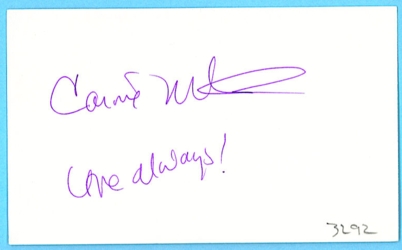 Carrie
Love always!
3292